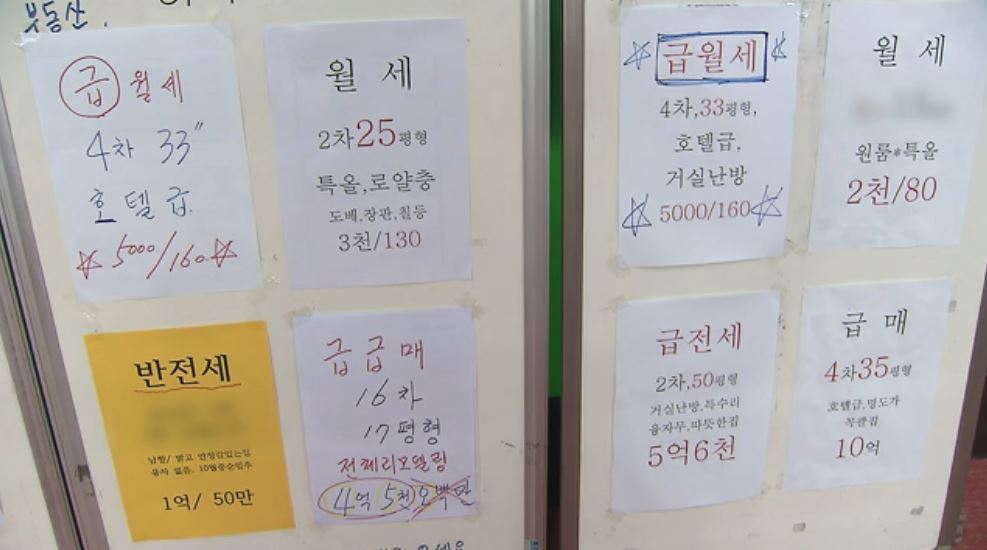 부동산.
급 월세
4차 33"
호텔급
☆ 5000/160 ☆
월 세
2차25평형
특올,로얄층
도배,장판,칠등
3천/130
반전세
남향/ 밝고 안정감있는집
융자 없음. 10월중순입주
1억/ 50만
급급매
16차
17평형
전체리모델링
4억 5천오백만
☆ 급월세 ☆
4차,33평형,
호텔급,
거실난방
☆ 5000/160 ☆
월 세
원룸*특올
2천/80
급전세
2차,50평형
거실난방,특수리
융자무,따뜻한집
5억6천
급 매
4차35평형
호텔급,명도가
10억